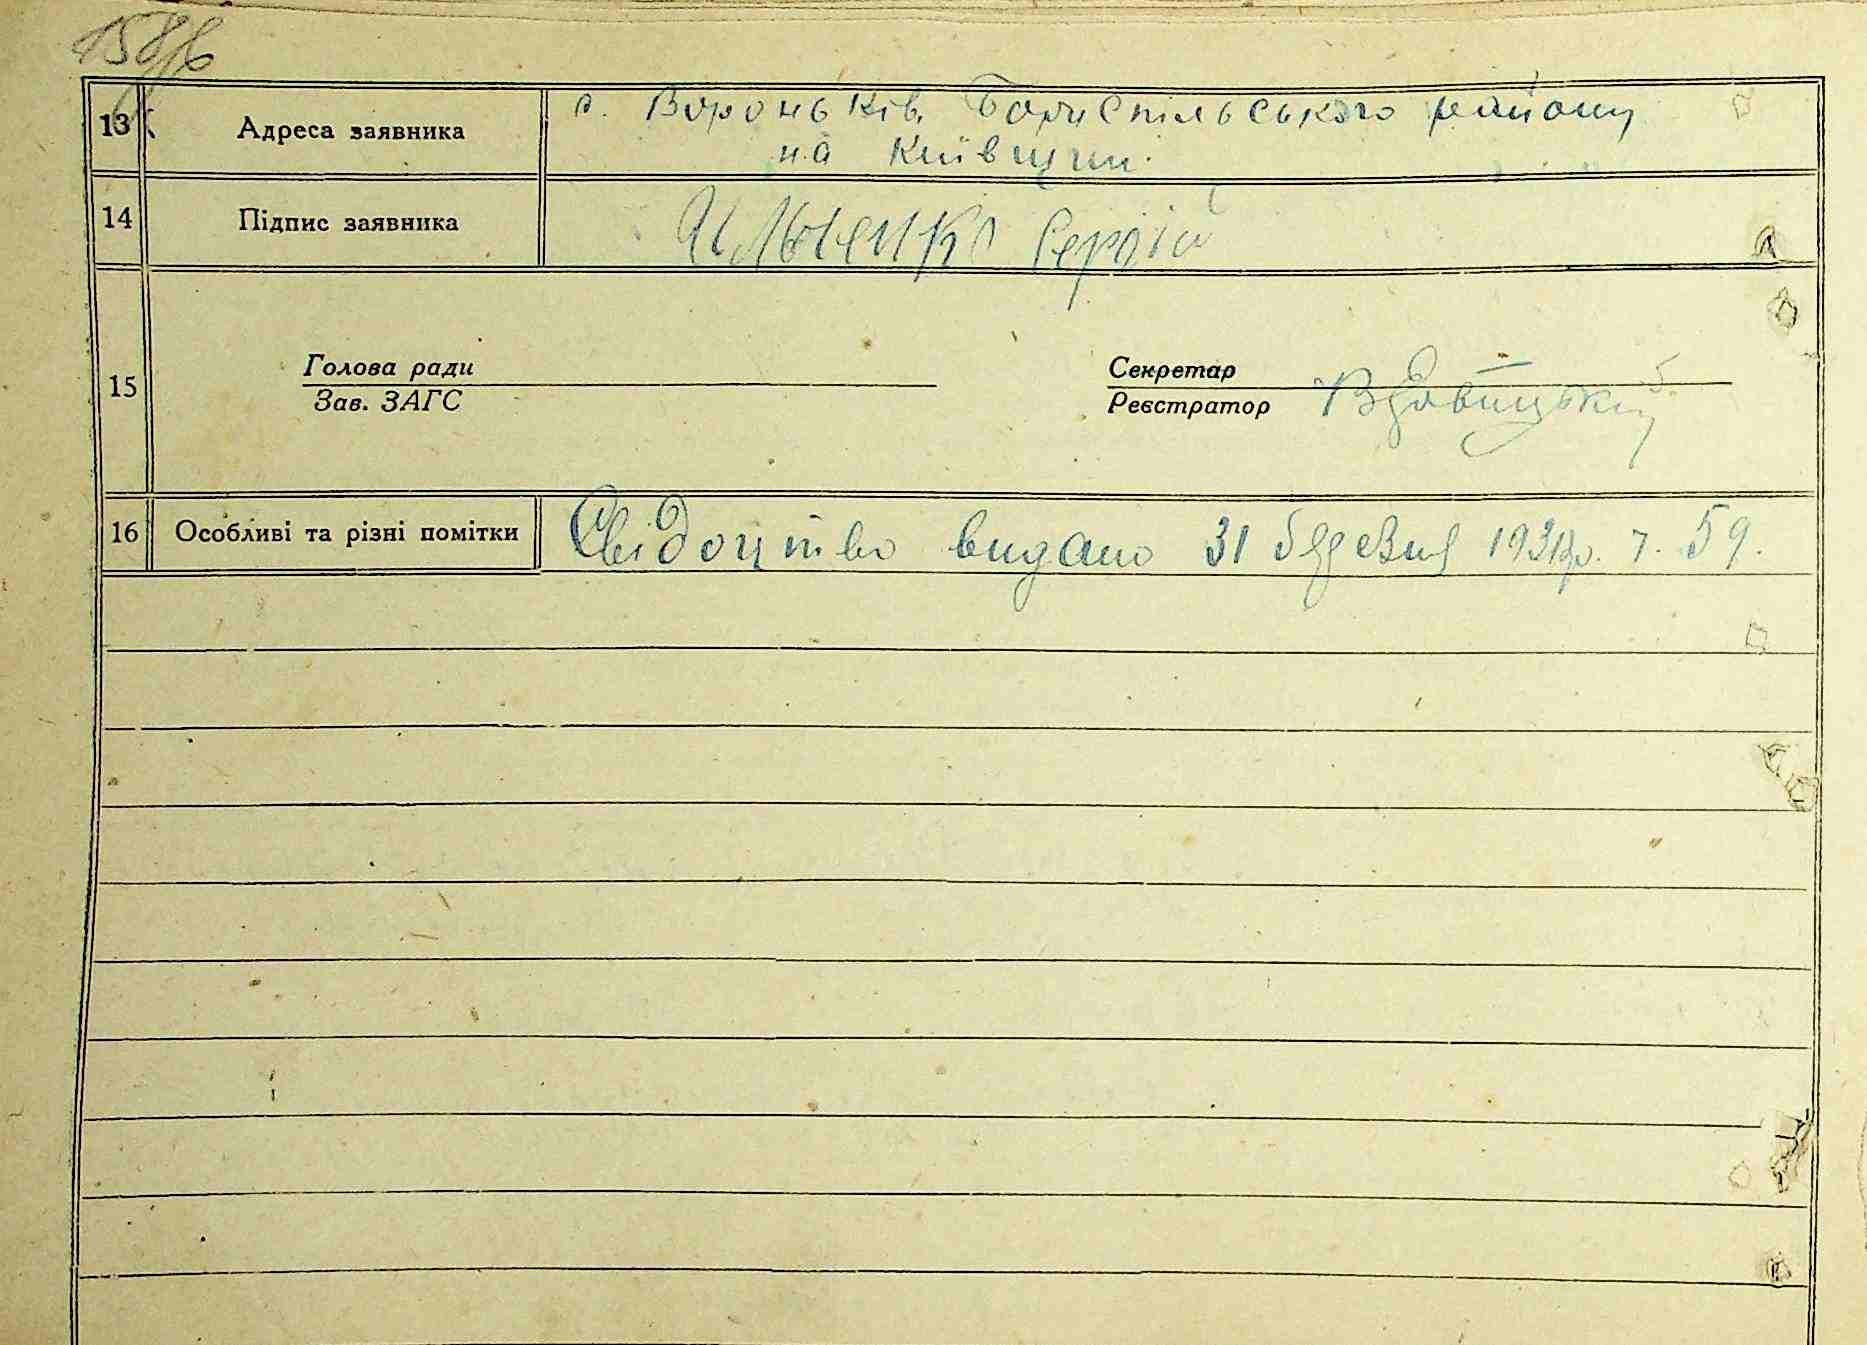 13 Адреса заявника с. Вороньків, Бориспільського району
на Київщині.
14 Підпис заявника Ильченко Сергій
15
Голова ради Секретар
Зав. ЗАГС Реєстратор
16 Особливі та різні помітки Свідоцтво видано 31 березня 1931р. ч. 59.